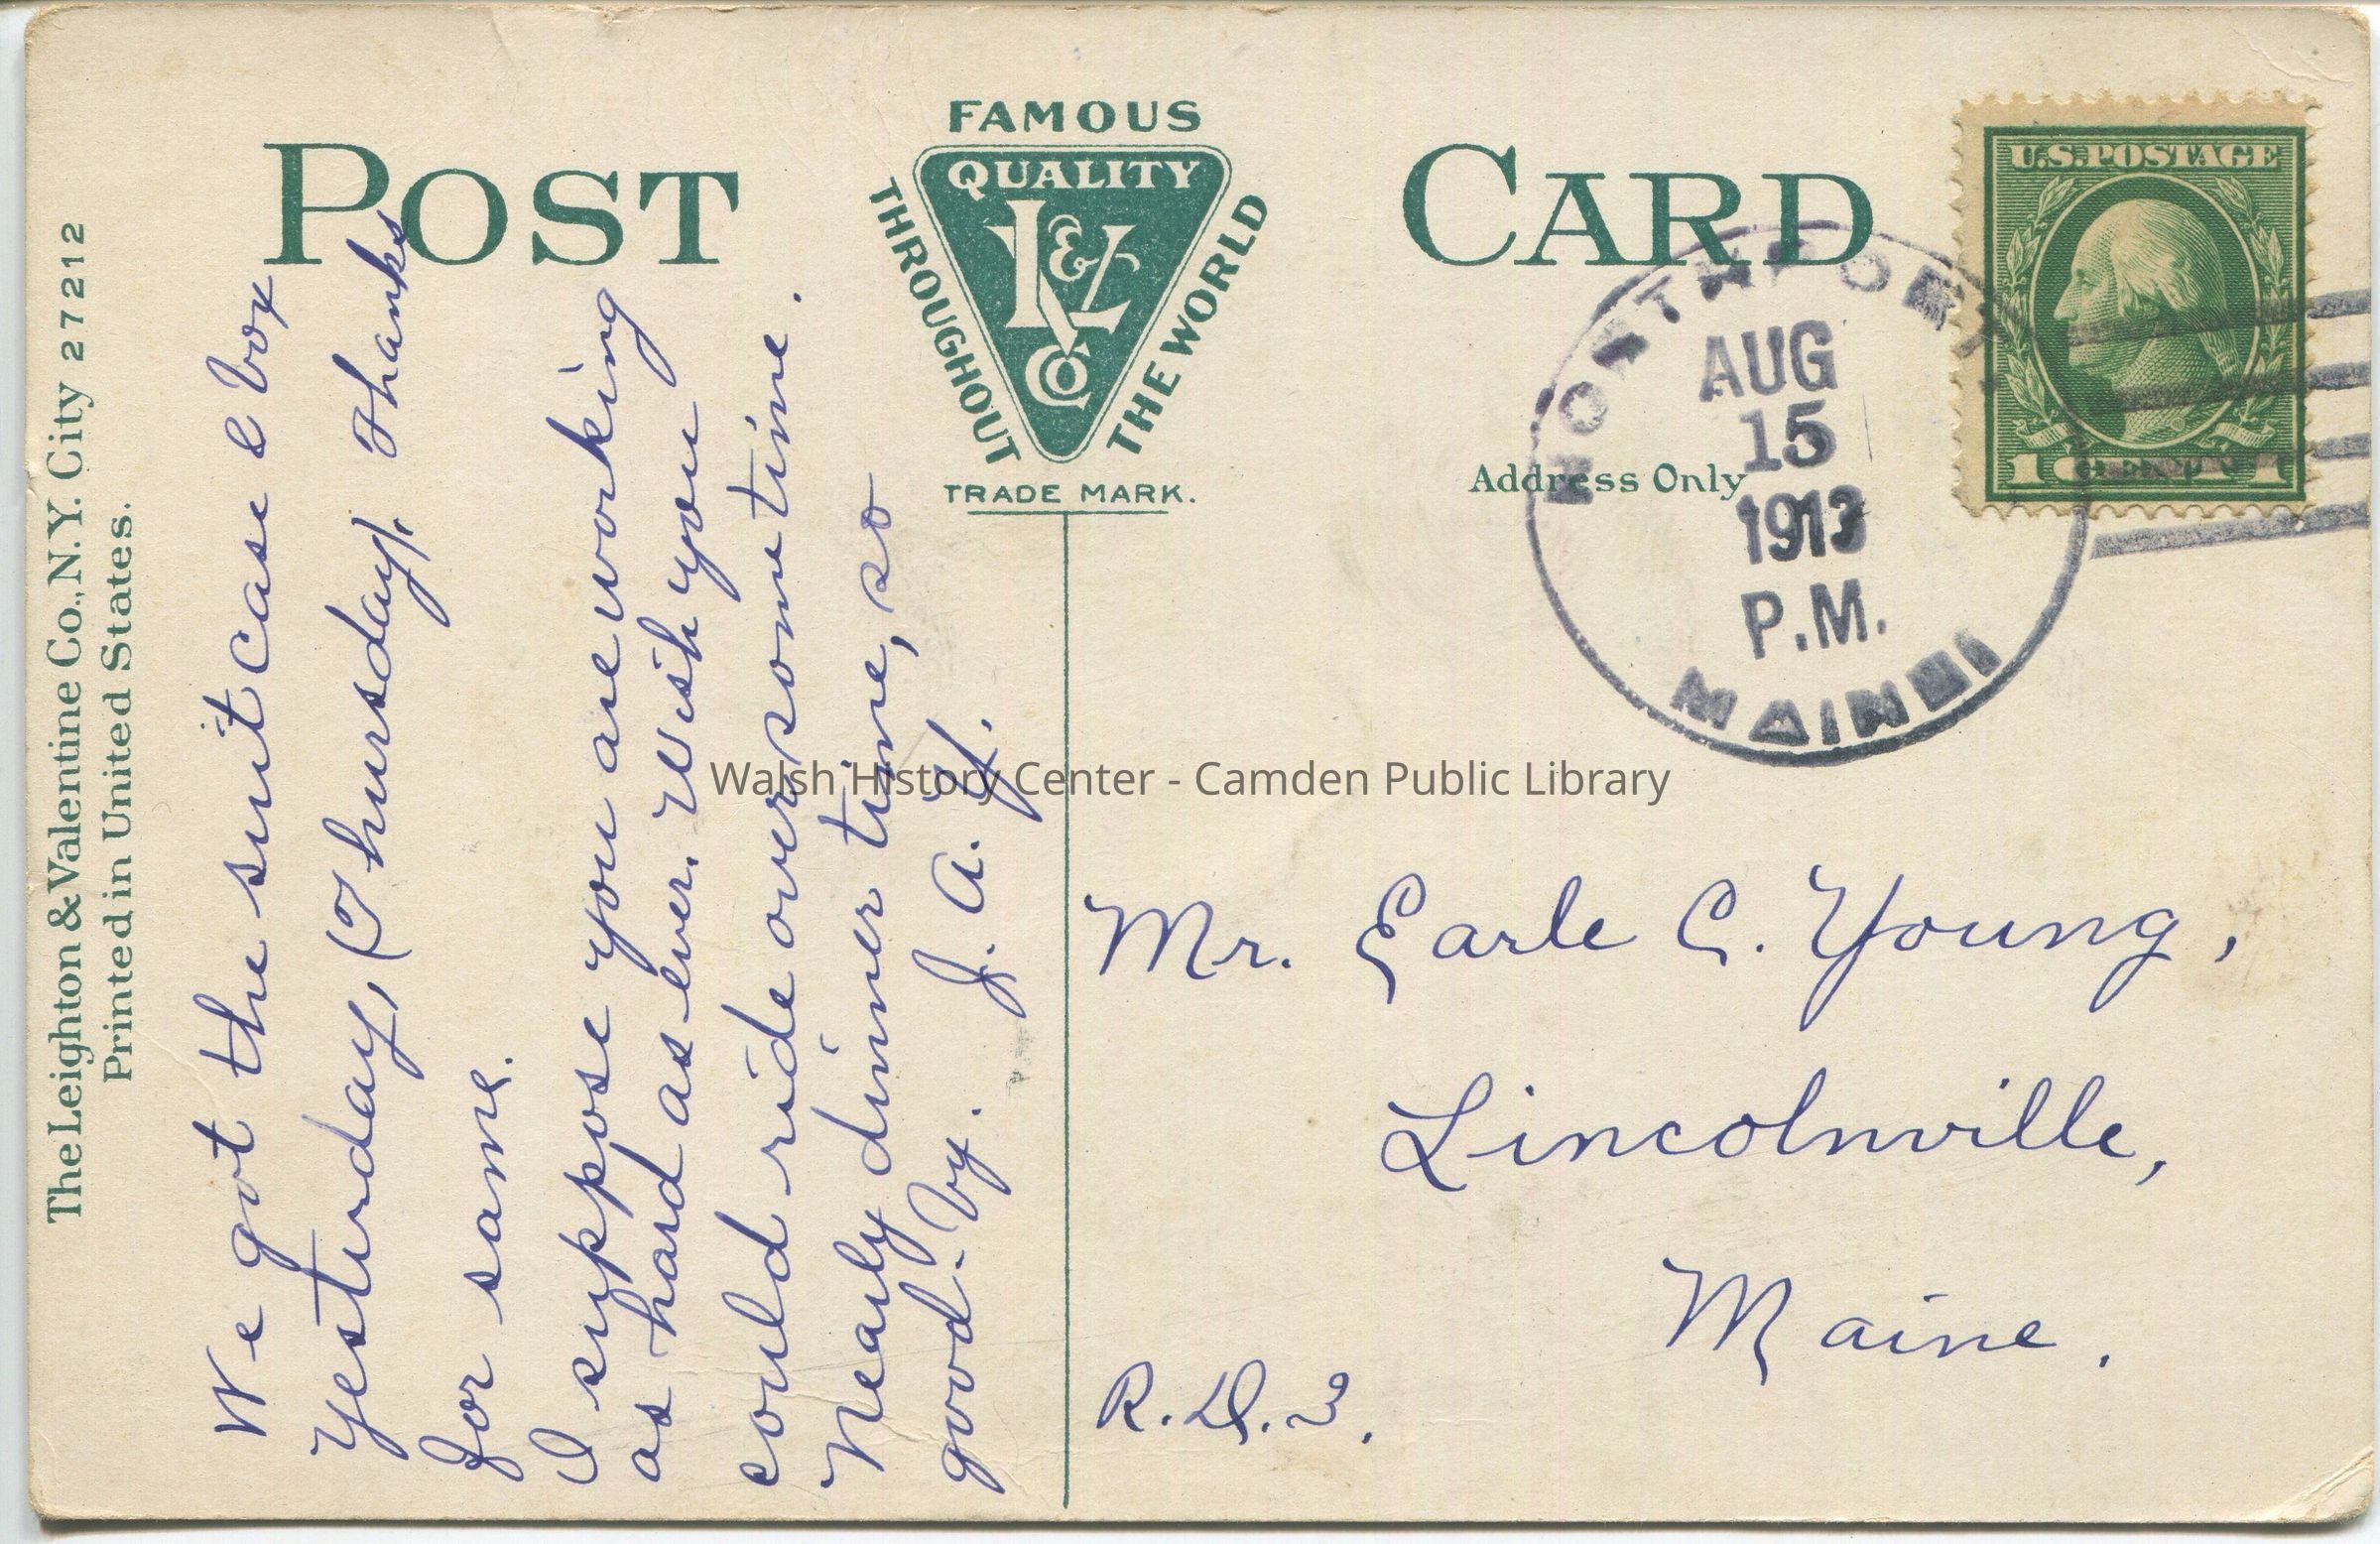 The Leighton & Valentine Co., N.Y. City 27212
Printed in United States.
POST CARD
FAMOUS
QUALITY
THROUGHOUT
THE WORLD
L & V
Co
TRADE MARK.
Address Only
U.S. POSTAGE
1 CENT 1
NORTHPORT
AUG
15
1913
P.M.
MAINE
We got the suit case & box
yesterday, (Thursday). Thanks
for same.
I suppose you are working
as hard as ever. Wish you
could ride over sometime.
Nearly dinner time, so
good-by. J. A. Y.
Mr. Earle C. Young,
Lincolnville,
Maine.
R.D.
Walsh History Center - Camden Public Library